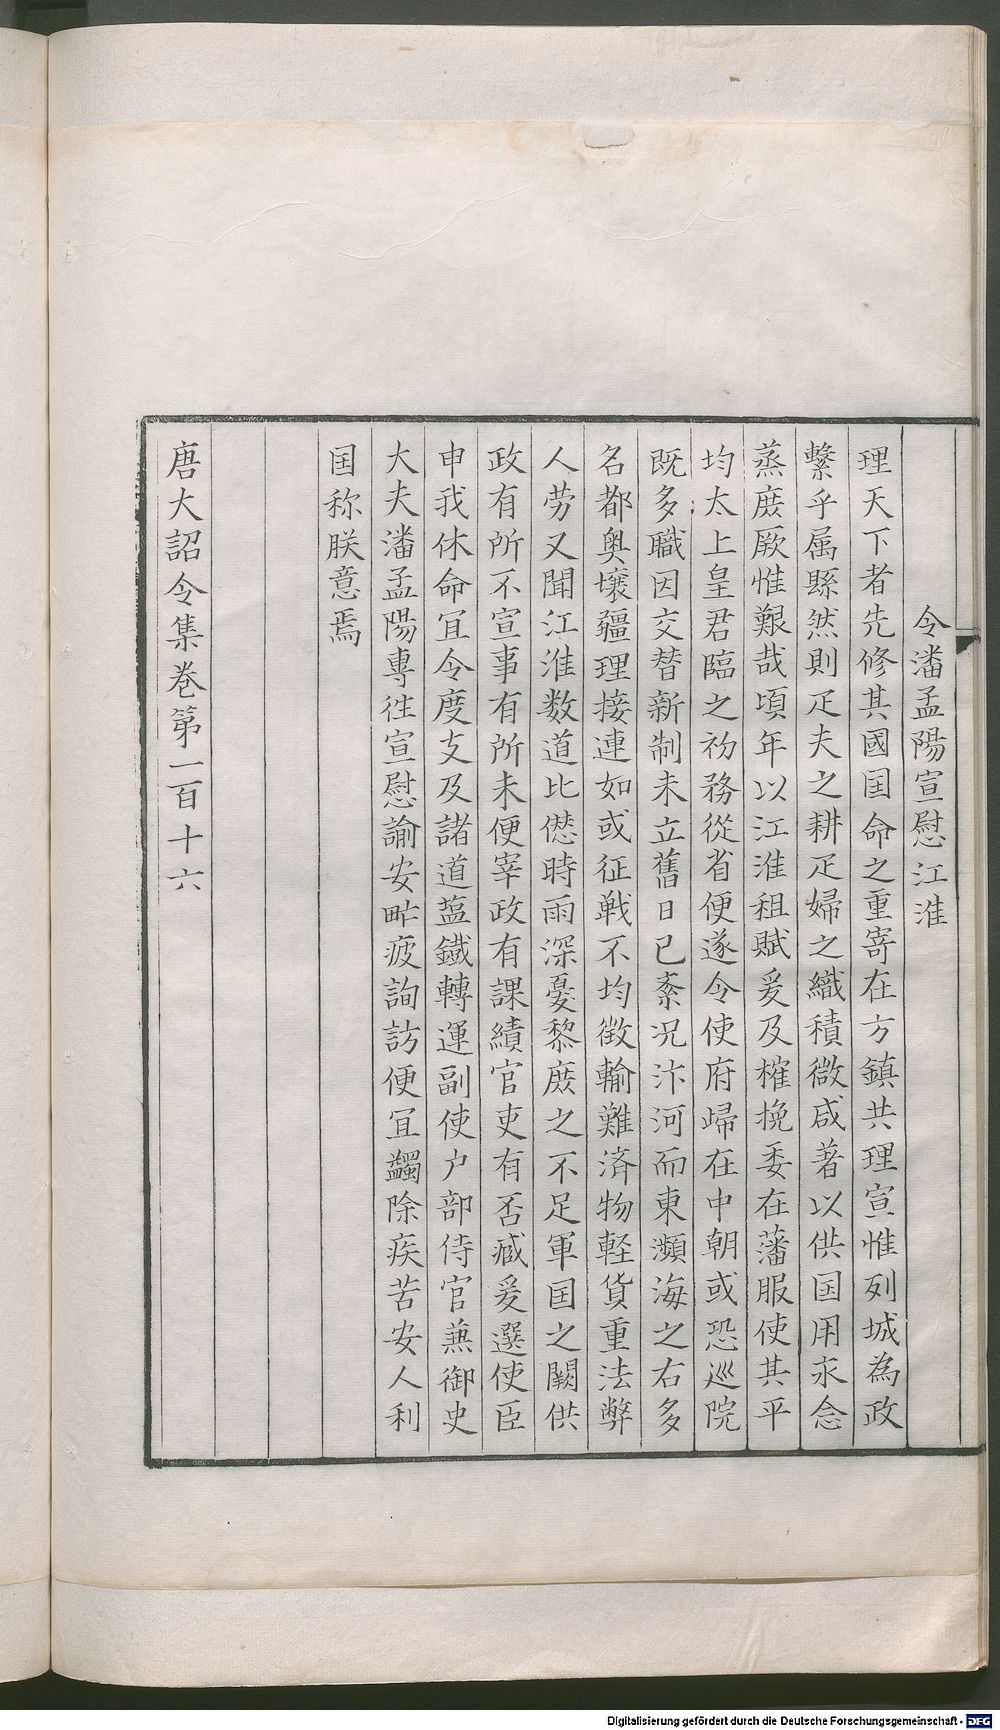 令潘孟陽宣慰江淮
理天下者先修其國囯命之重寄在方鎮共理宣惟列城為政
繫乎属縣然則疋夫之耕疋婦之織積微咸著以供囯用永念
蒸庶厥惟艱哉頃年以江淮租賦爰及榷挽委在藩服使其平
均太上皇君臨之初務從省便遂令使府歸在中朝或恐巡院
既多職因交替新制未立舊日已紊况汴河而東瀕海之右多
名都奥壤疆理接連如或征戦不均徴輸難済物軽貨重法弊
人劳又聞江淮数道比愆時雨深憂黎庶之不足軍囯之闕供
政有所不宣事有所未便宰政有課績官吏有否臧爰選使臣
申我休命冝令度支及諸道藍鐵轉運副使户部侍官兼御史
大夫潘孟陽專徃宣慰諭安甿疲詢訪便冝蠲除疾苦安人利
囯称朕意焉
唐大詔令集卷第一百十六
Digitalisierung gefördert durch die Deutsche Forschungsgemeinschaft - DFG